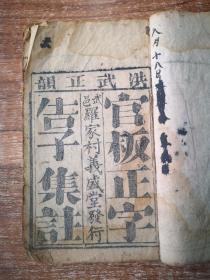 洪武正韻
官板正字
羅家村義盛堂發行
告子集註
八月十八日